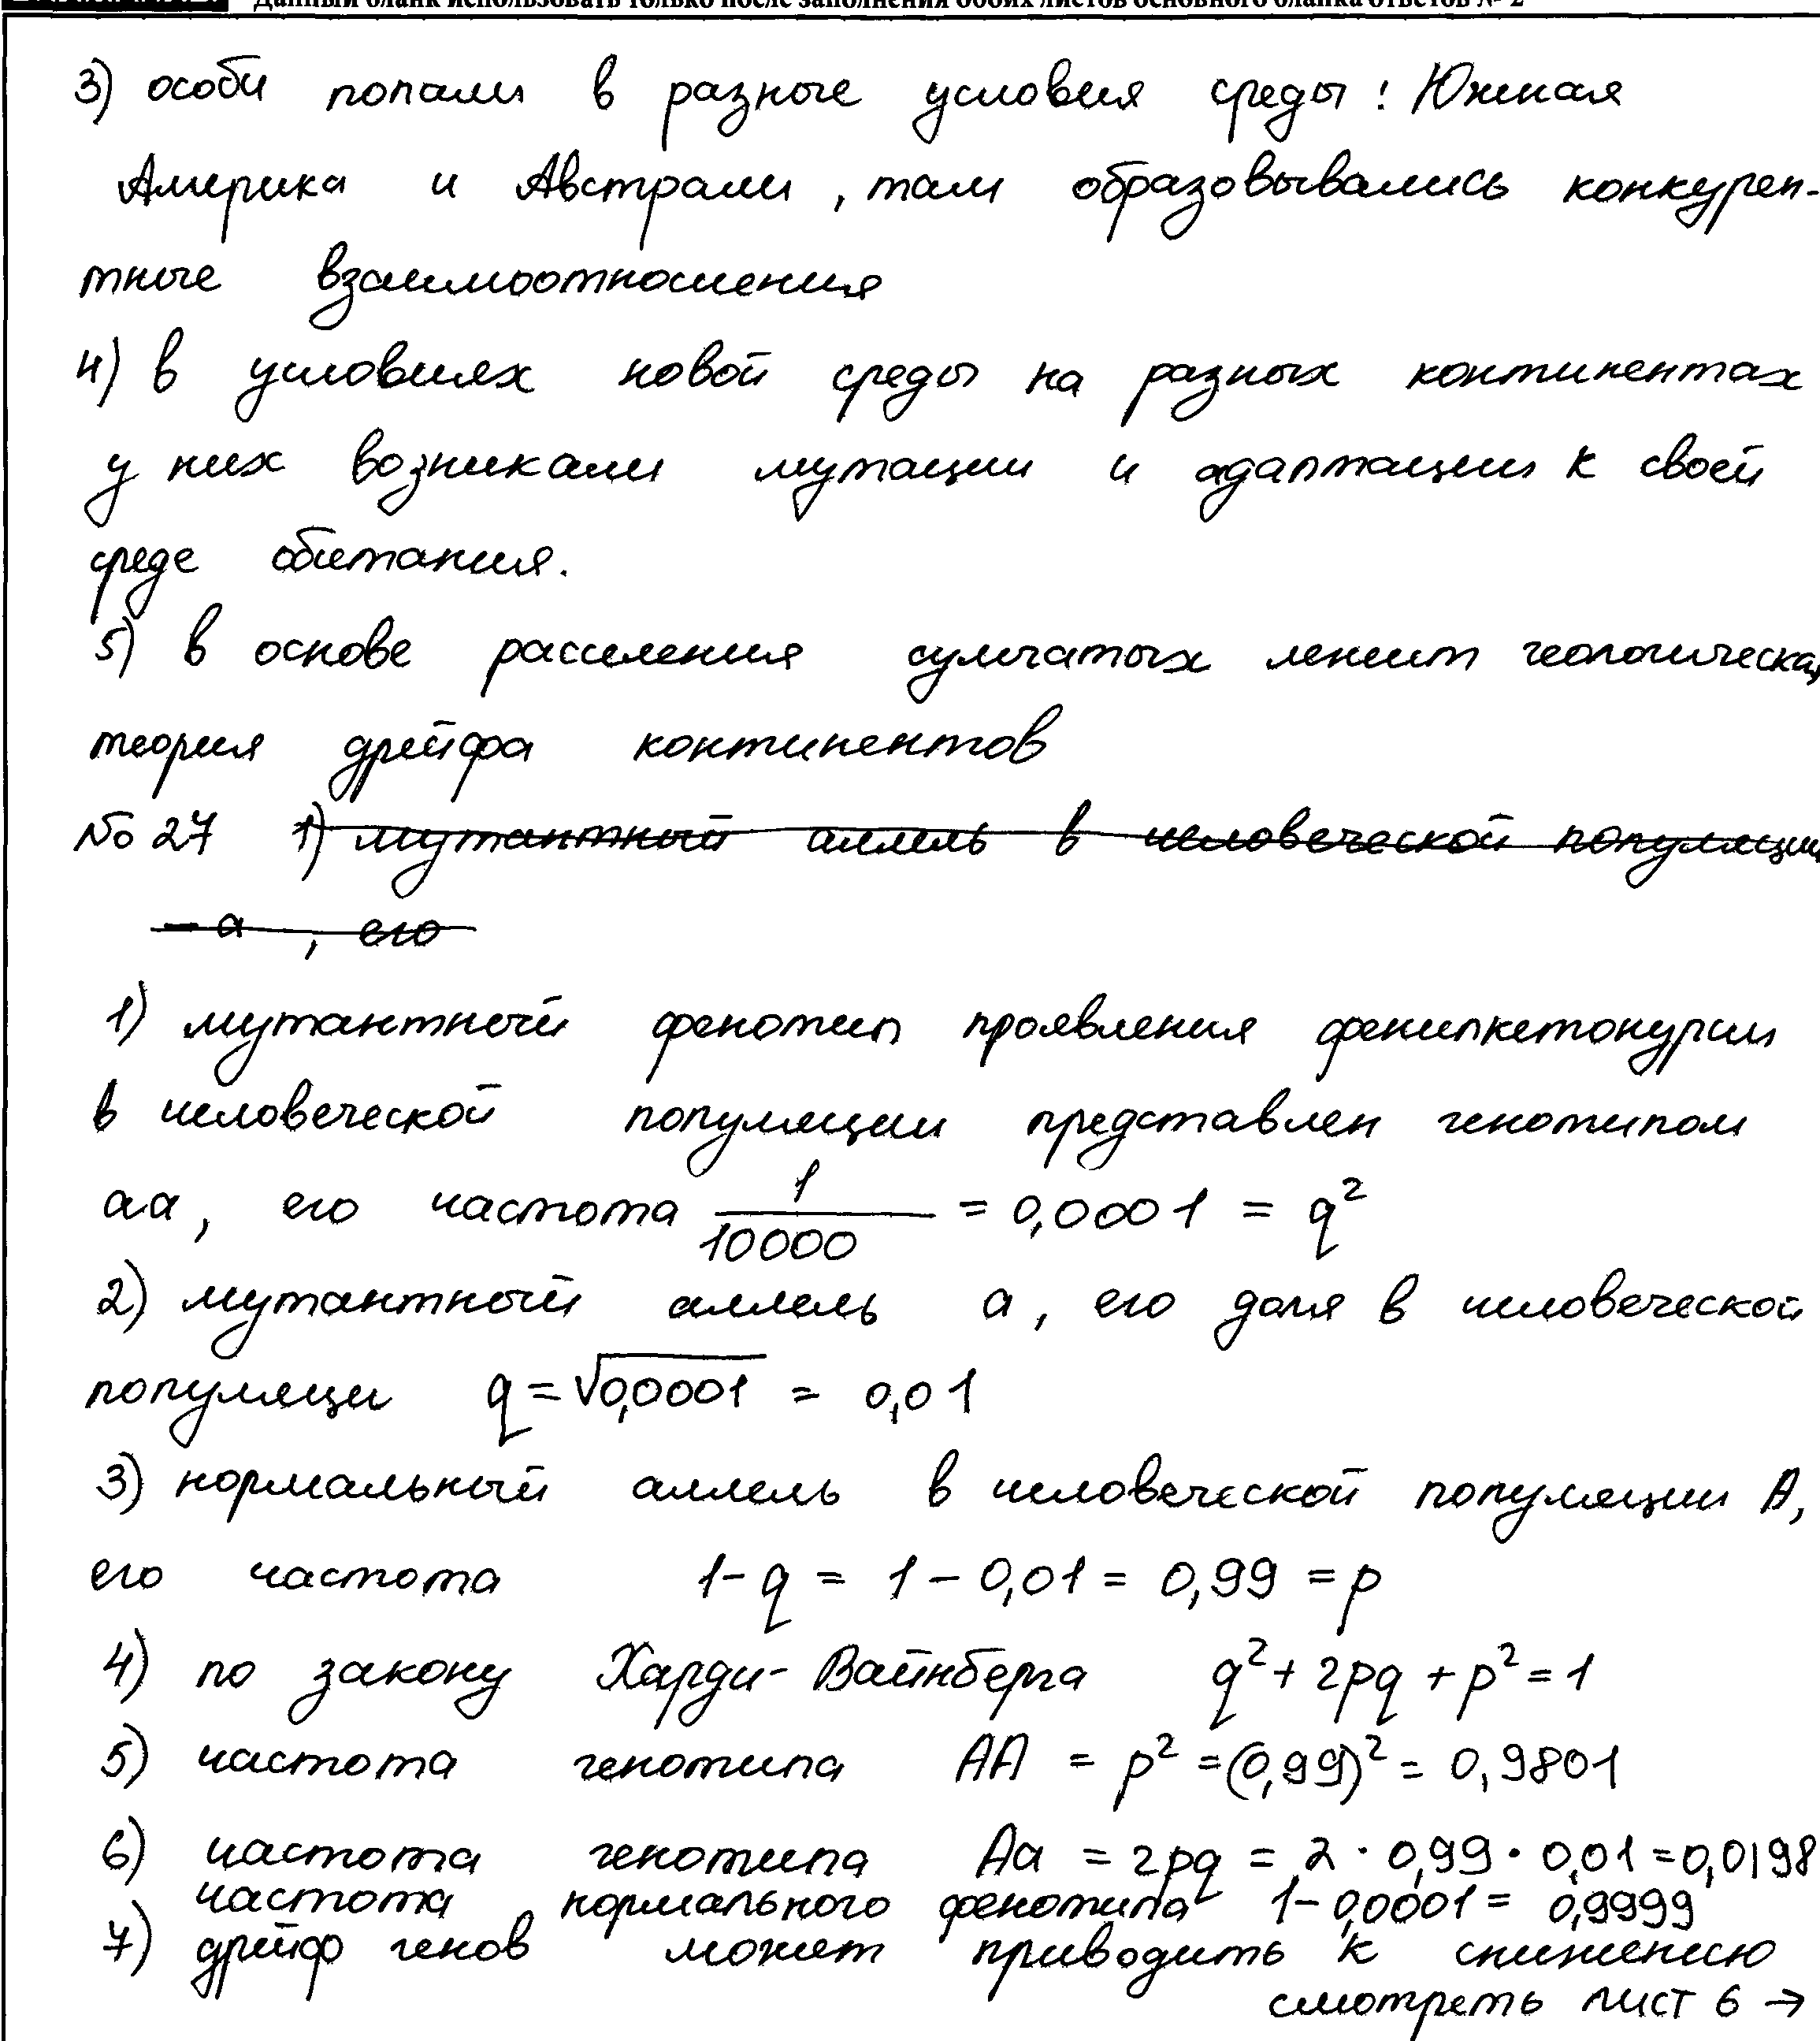 Данный бланк использовать только после заполнения обоих листов основного бланка ответов № 2
3) особи попали в разные условия среды: Южная
Америка и Австрали, там образовывались конкурен-
тные взаимоотношения
4) в условиях новой среды на разных континентах
у них возникали мутации и адаптации к своей
среде обитания.
5) в основе расселения сумчатых лежит геологическая
теория дрейфа континентов
№ 27 1) мутантный аллель в человеческой популяции
– а , его
1) мутантный фенотип проявления фенилкетонурии
в человеческой популяции представлен генотипом
аа, его частота 1/10000 = 0,0001 = q²
2) мутантный аллель а, его доля в человеческой
популяци q = √0,0001 = 0,01
3) нормальный аллель в человеческой популяции А,
его частота 1- q = 1 – 0,01 = 0,99 = p
4) по закону Харди- Вайнберга q² + 2pq + p² = 1
5) частота генотипа АА = p² = (0,99)² = 0,9801
6) частота генотипа Аа = 2pq = 2 · 0,99 · 0,01 = 0,0198
частота нормального фенотипа 1 – 0,0001 = 0,9999
7) дрейф генов может приводить к снижению
смотреть лист 6 →